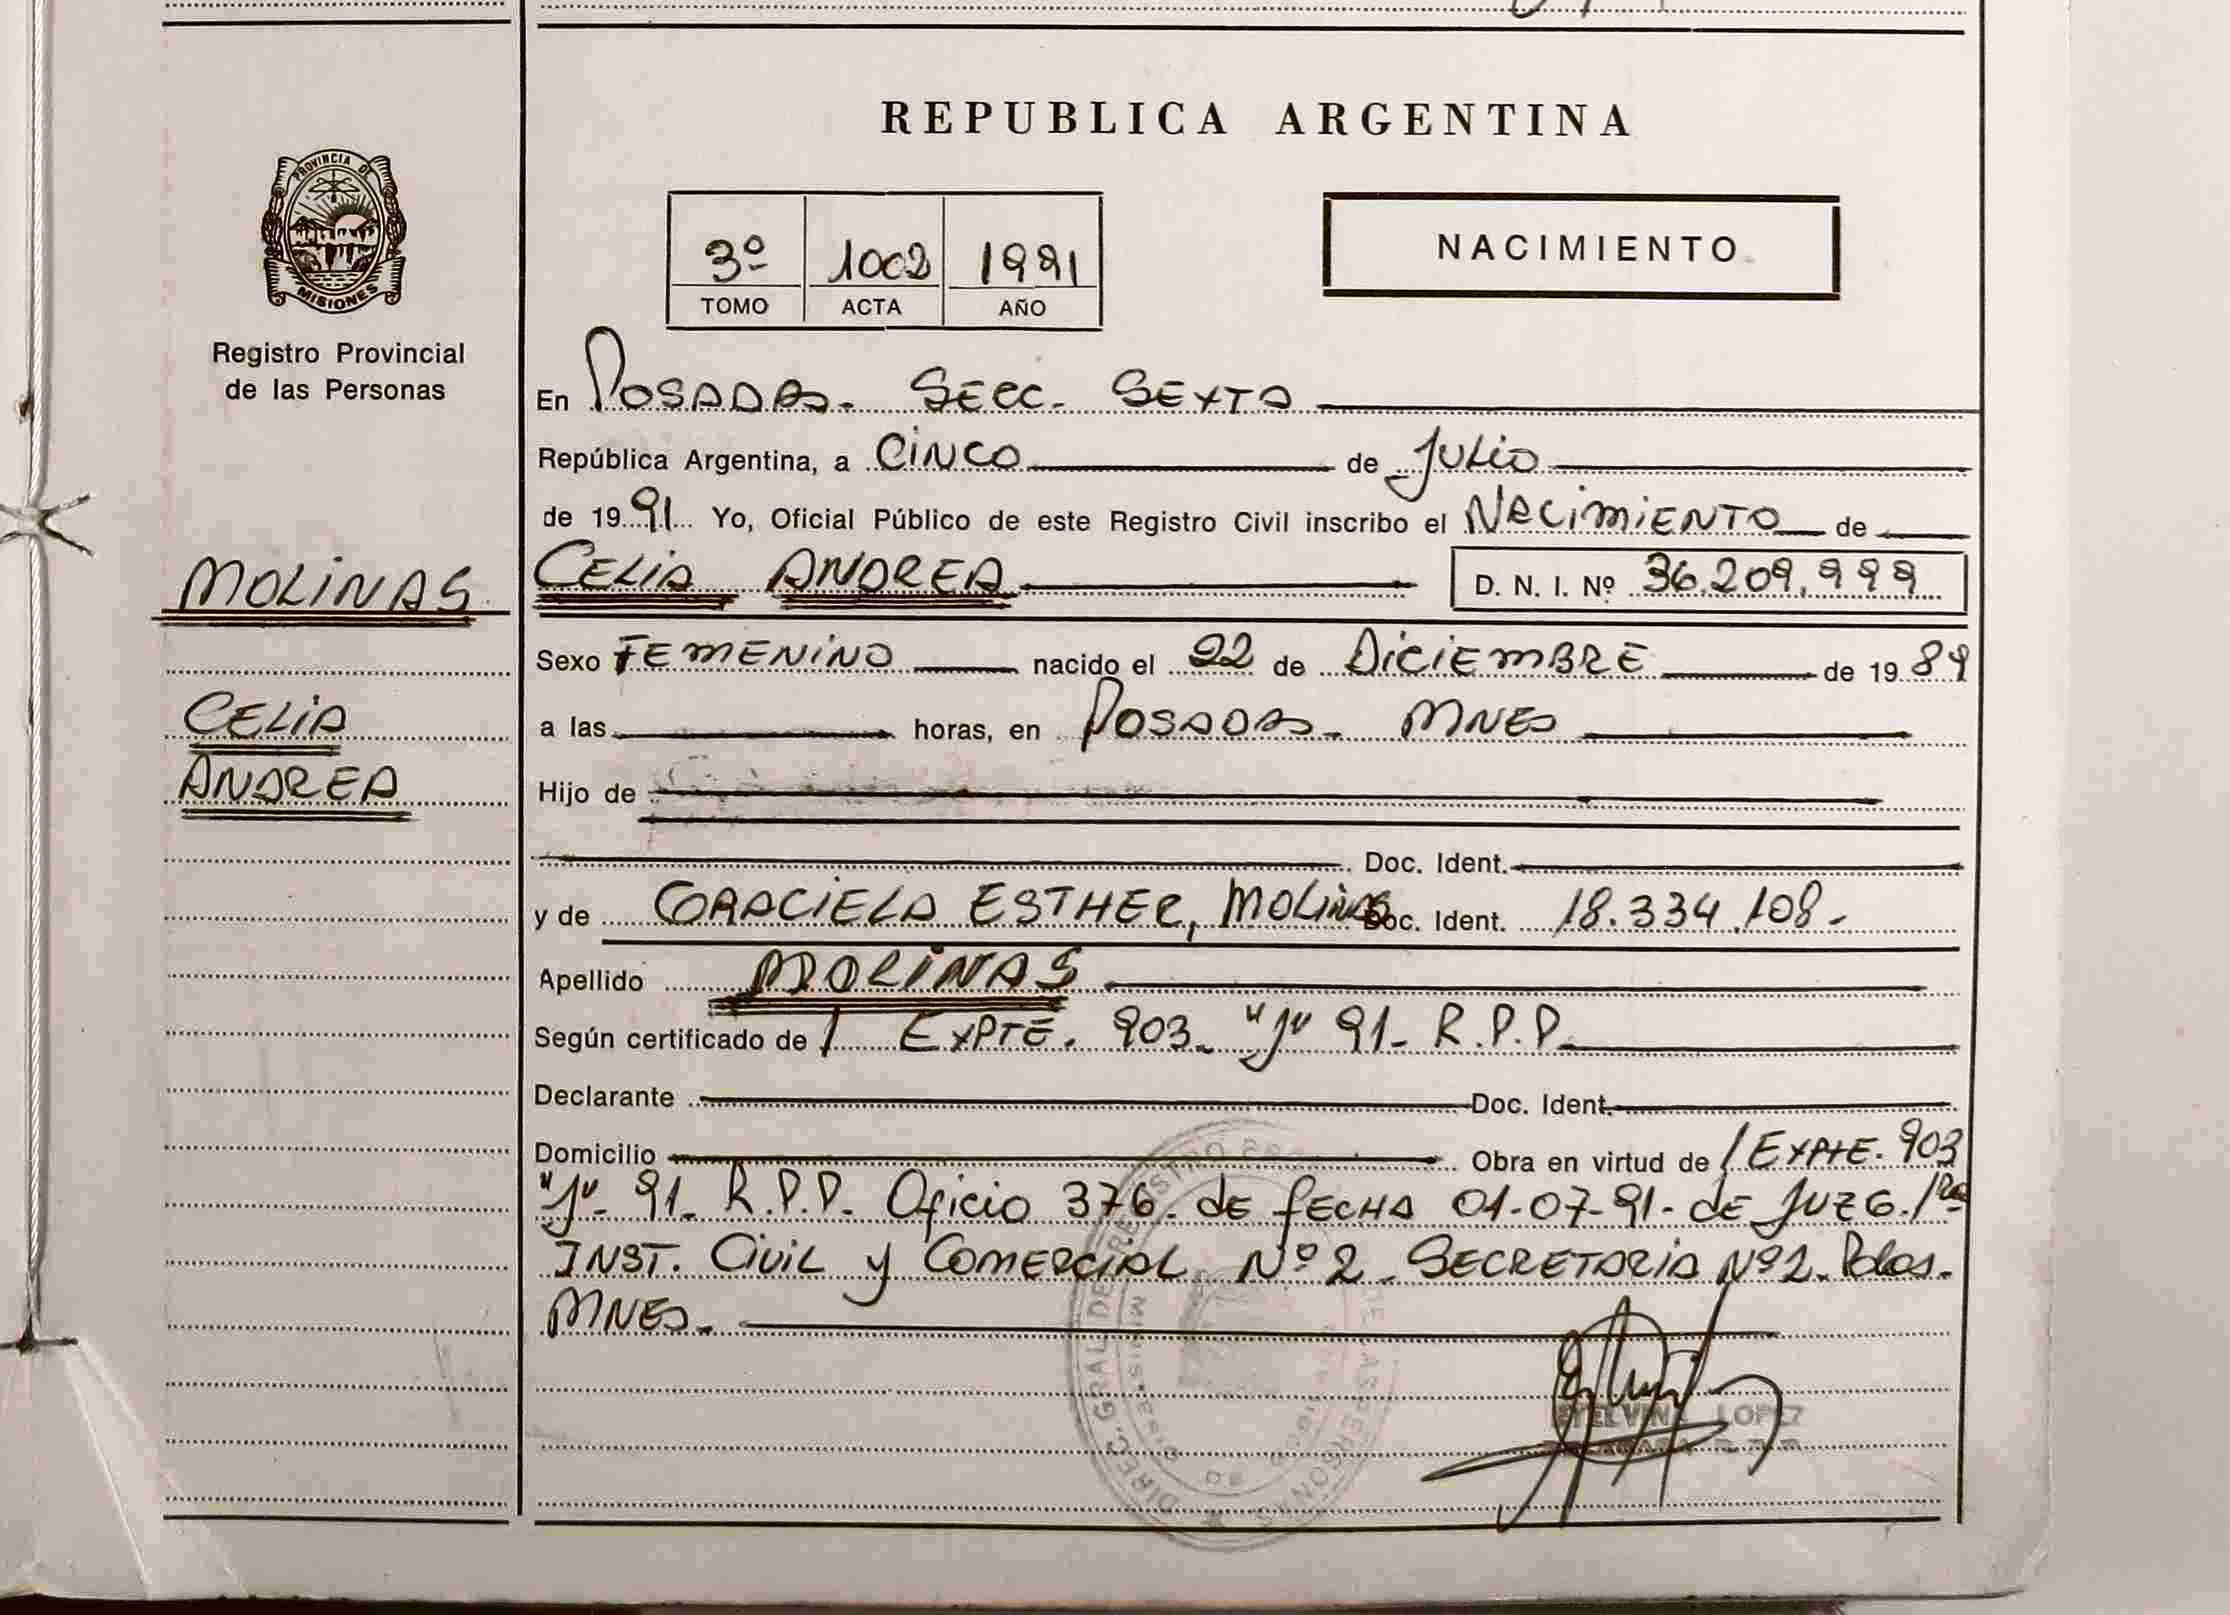 REPUBLICA ARGENTINA
PROVINCIA DE
MISIONES
Registro Provincial
de las Personas
3º 1002 1991
TOMO ACTA AÑO
NACIMIENTO
En POSADAS. SECC. SEXTA
República Argentina, a CINCO de JULIO
de 1991 Yo, Oficial Público de este Registro Civil inscribo el NACIMIENTO de
MOLINAS
CELIA ANDREA D. N. I. Nº 36.209.999
Sexo FEMENINO nacido el 22 de DICIEMBRE de 1989
CELIA
ANDREA
a las horas, en POSADAS. MNES
Hijo de
Doc. Ident.
y de GRACIELA ESTHER, MOLINAS Doc. Ident. 18.334.108-
Apellido MOLINAS
Según certificado de / EXPTE. 903. "J" 91- R.P.P.
Declarante Doc. Ident.
Domicilio Obra en virtud de / EXPTE. 903
"J". 91. R.P.P. Oficio 376. de FECHA 01-07-91- de JUZG. 1ra
INST. CIVIL y COMERCIAL Nº 2. SECRETARIA Nº 2. Pdas.
MNES.
LOPEZ